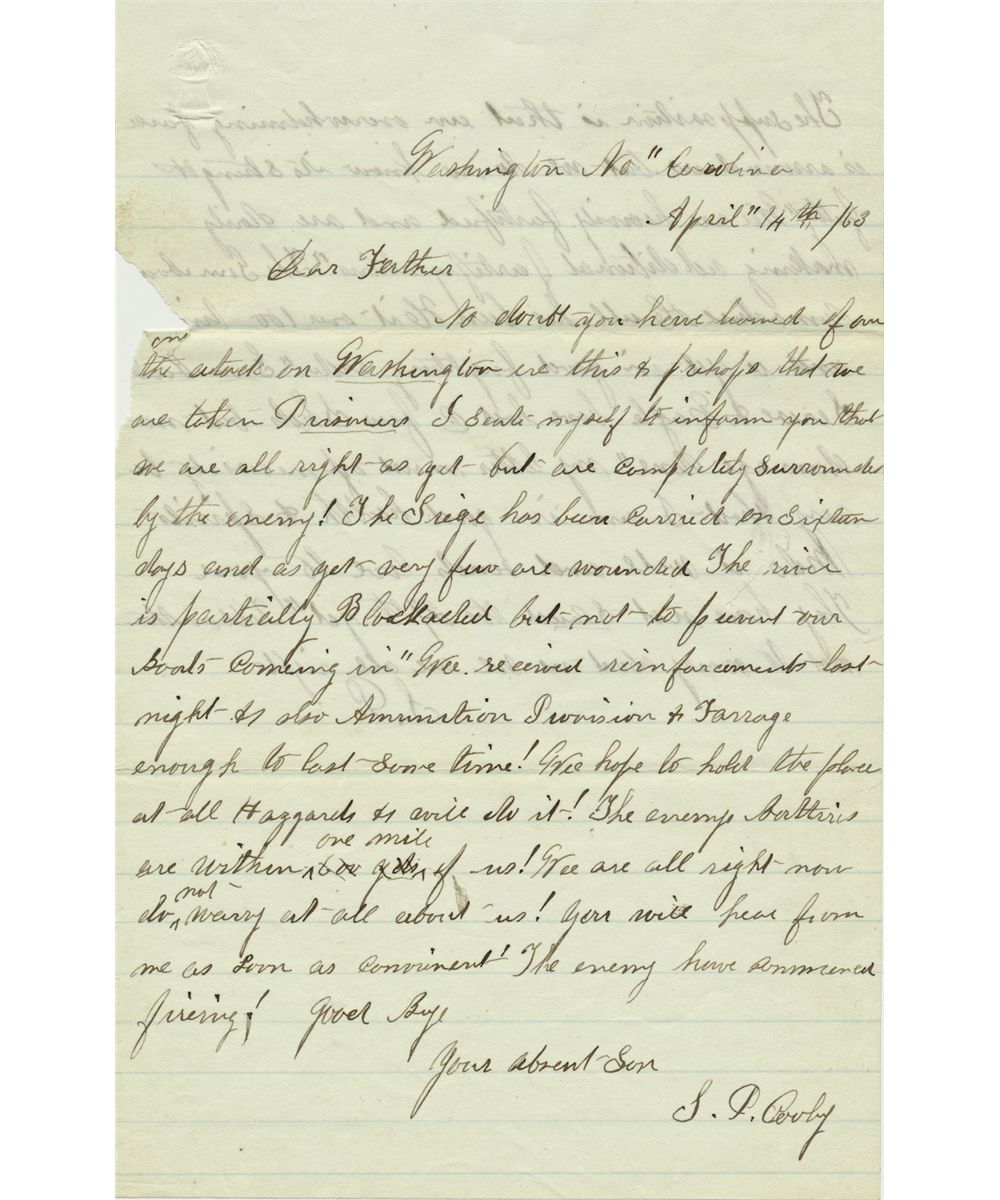 Washington No" Carolina
April" 14th /63
Dear Father
No doubt you have learned of our
the attack on Washington ere this & prehaps that we
are taken Prisoners I Seate myself to inform you that
we are all right as yet but are completely Surrounded
by the enemy! The Siege has been carried on Sixteen
days and as yet very few are wounded The river
is partially Blockaded but not to prevent our
Boats Comeing in" Wee received reinforcements last
night & also Amunition Provision & Farrage
enough to last Some time! Wee hope to hold the place
at all Haggards & will do it! The enemys Batteries
one mile
are within of us! Wee are all right now
not
do warry at all about us! You will hear from
me as Soon as convinent! The enemy have commenced
fireing! Good Bye
Your absent Son
S. P.